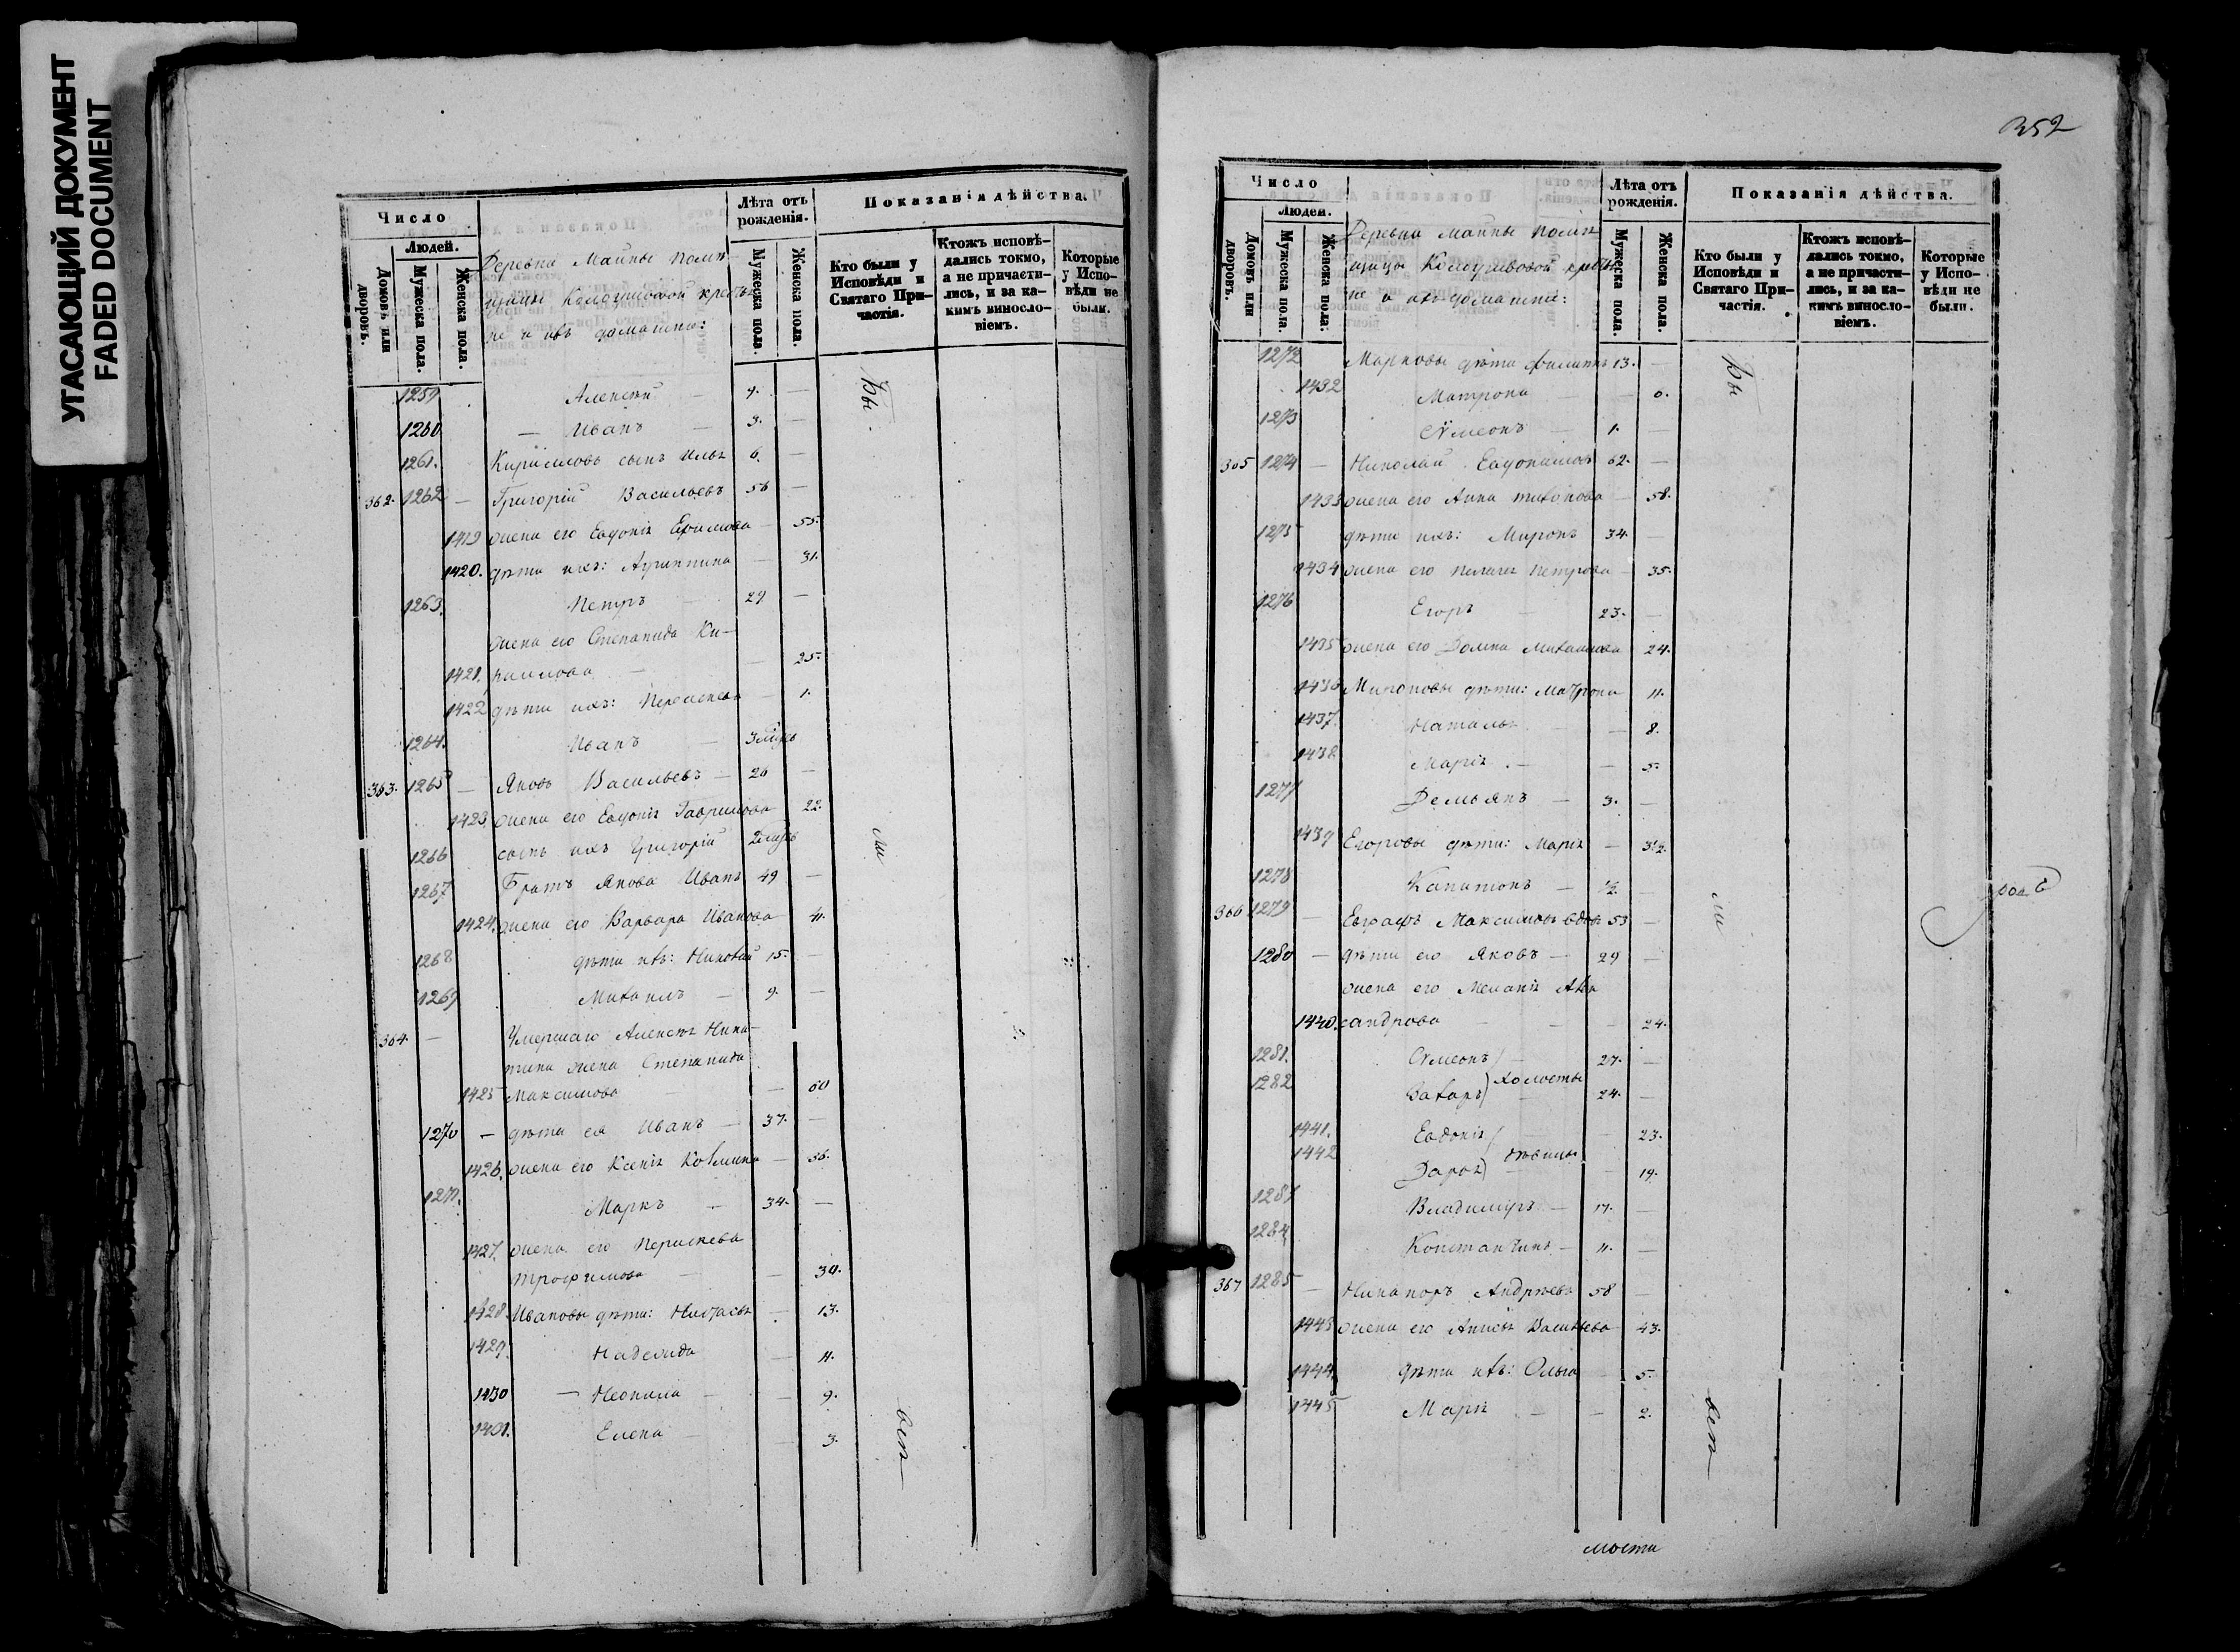 УГАСАЮЩИЙ ДОКУМЕНТ
FADED DOCUMENT
Число
Людей.
Домовъ или дворовъ.
Мужеска пола.
Женска пола.
Деревни Майны помѣ-
щицы крестья
не и ихъ домашніе:
Лѣта отъ рожденія.
Мужеска пола.
Женска пола.
Показанія дѣйства.
Кто были у Исповѣди и Святаго При-частія.
Ктожъ исповѣ-дались токмо, а не причасти-лись, и за ка-кимъ винослo-віемъ.
Которые у Испо-вѣди не были.
Бы
1259 Алексѣй — 4. —
1260 — Иванъ — 3. —
1261. Кириловъ сынъ Илья 6. —
362. 1262 — Григорій Васильевъ 56 —
1419 жена его Евдокія Ефимова — 55.
1420. дѣти ихъ: Агрипина — 31.
1263. Петръ — 29 —
жена его Степанида Ки-
1421. рилова — — 25.
1422 дѣти ихъ: Пераскева — 1.
1264. Иванъ —
363. 1265 — Яковъ Васильевъ — 26 —
1423. жена его Евдокія Гаврилова 22.
1266 сынъ ихъ Григорій
ли
1267 Братъ Якова Иванъ 49 —
1424. жена его Варвара Иванова 41.
1268 дѣти ихъ: Николай 15. —
1269 Михаилъ — 9. —
364. — Умершаго Алексѣя Ники-
тина жена Степанида
1425 Максимова — — 60
1270 — дѣти ея Иванъ — 37. —
1426. жена его Ксенія Козмина — 36.
1271. Маркъ — 34. —
1427. жена его Пераскева
Трофимова — — 34.
1428 Ивановы дѣти: Настасья — 13.
1429. Надежда — 11.
1430 — Неонила — — 9.
1431. Елена — 3.
всѣ
352
Число
Людей.
Домовъ или дворовъ.
Мужеска пола.
Женска пола.
Деревни Майны помѣ-
щицы крестья
не и ихъ домашніе:
Лѣта отъ рожденія.
Мужеска пола.
Женска пола.
Показанія дѣйства.
Кто были у Исповѣди и Святаго При-частія.
Ктожъ исповѣ-дались токмо, а не причасти-лись, и за ка-кимъ винослo-віемъ.
Которые у Испо-вѣди не были.
Бы
1272 Марковы дѣти Филиппъ 13. —
1432 Матрона — 6.
1273 Сѵмеонъ — 1. —
365 1274 — Николай Евдокимовъ 62. —
1433 жена его Анна Тихонова — 58.
1275 дѣти ихъ: Миронъ 34. —
1434 жена его Пелагея Петрова — 35.
1276 Егоръ — 23. —
1435 жена его Домна Михайлова 24.
1436 Мироновы дѣти: Матрона 11.
1437. Наталья — — 8.
1438 Марія — — 5.
1277 Демьянъ — 3. —
1439 Егоровы дѣти: Марія — 3½.
1278 Капитонъ — ½. —
ли
366 1279 — Евграфъ Максимовъ вдовъ 53 —
1280 — дѣти его Яковъ — 29 —
жена его Меланія Алек
1440. сандрова — — — 24.
1281. Сѵмеонъ — 27. —
1282 Захаръ) холосты — 24. —
1441. Евдокія — — 23.
1442 Дарья) дѣвицы — — 19.
1283 Владиміръ — 17. —
1284 Константинъ — 11. —
367 1285 — Никаноръ Андреевъ 58 —
1443 жена его Анисья Васильева 43.
1444. дѣти ихъ: Ольга — 5.
1445 Марія — — 2.
всѣ